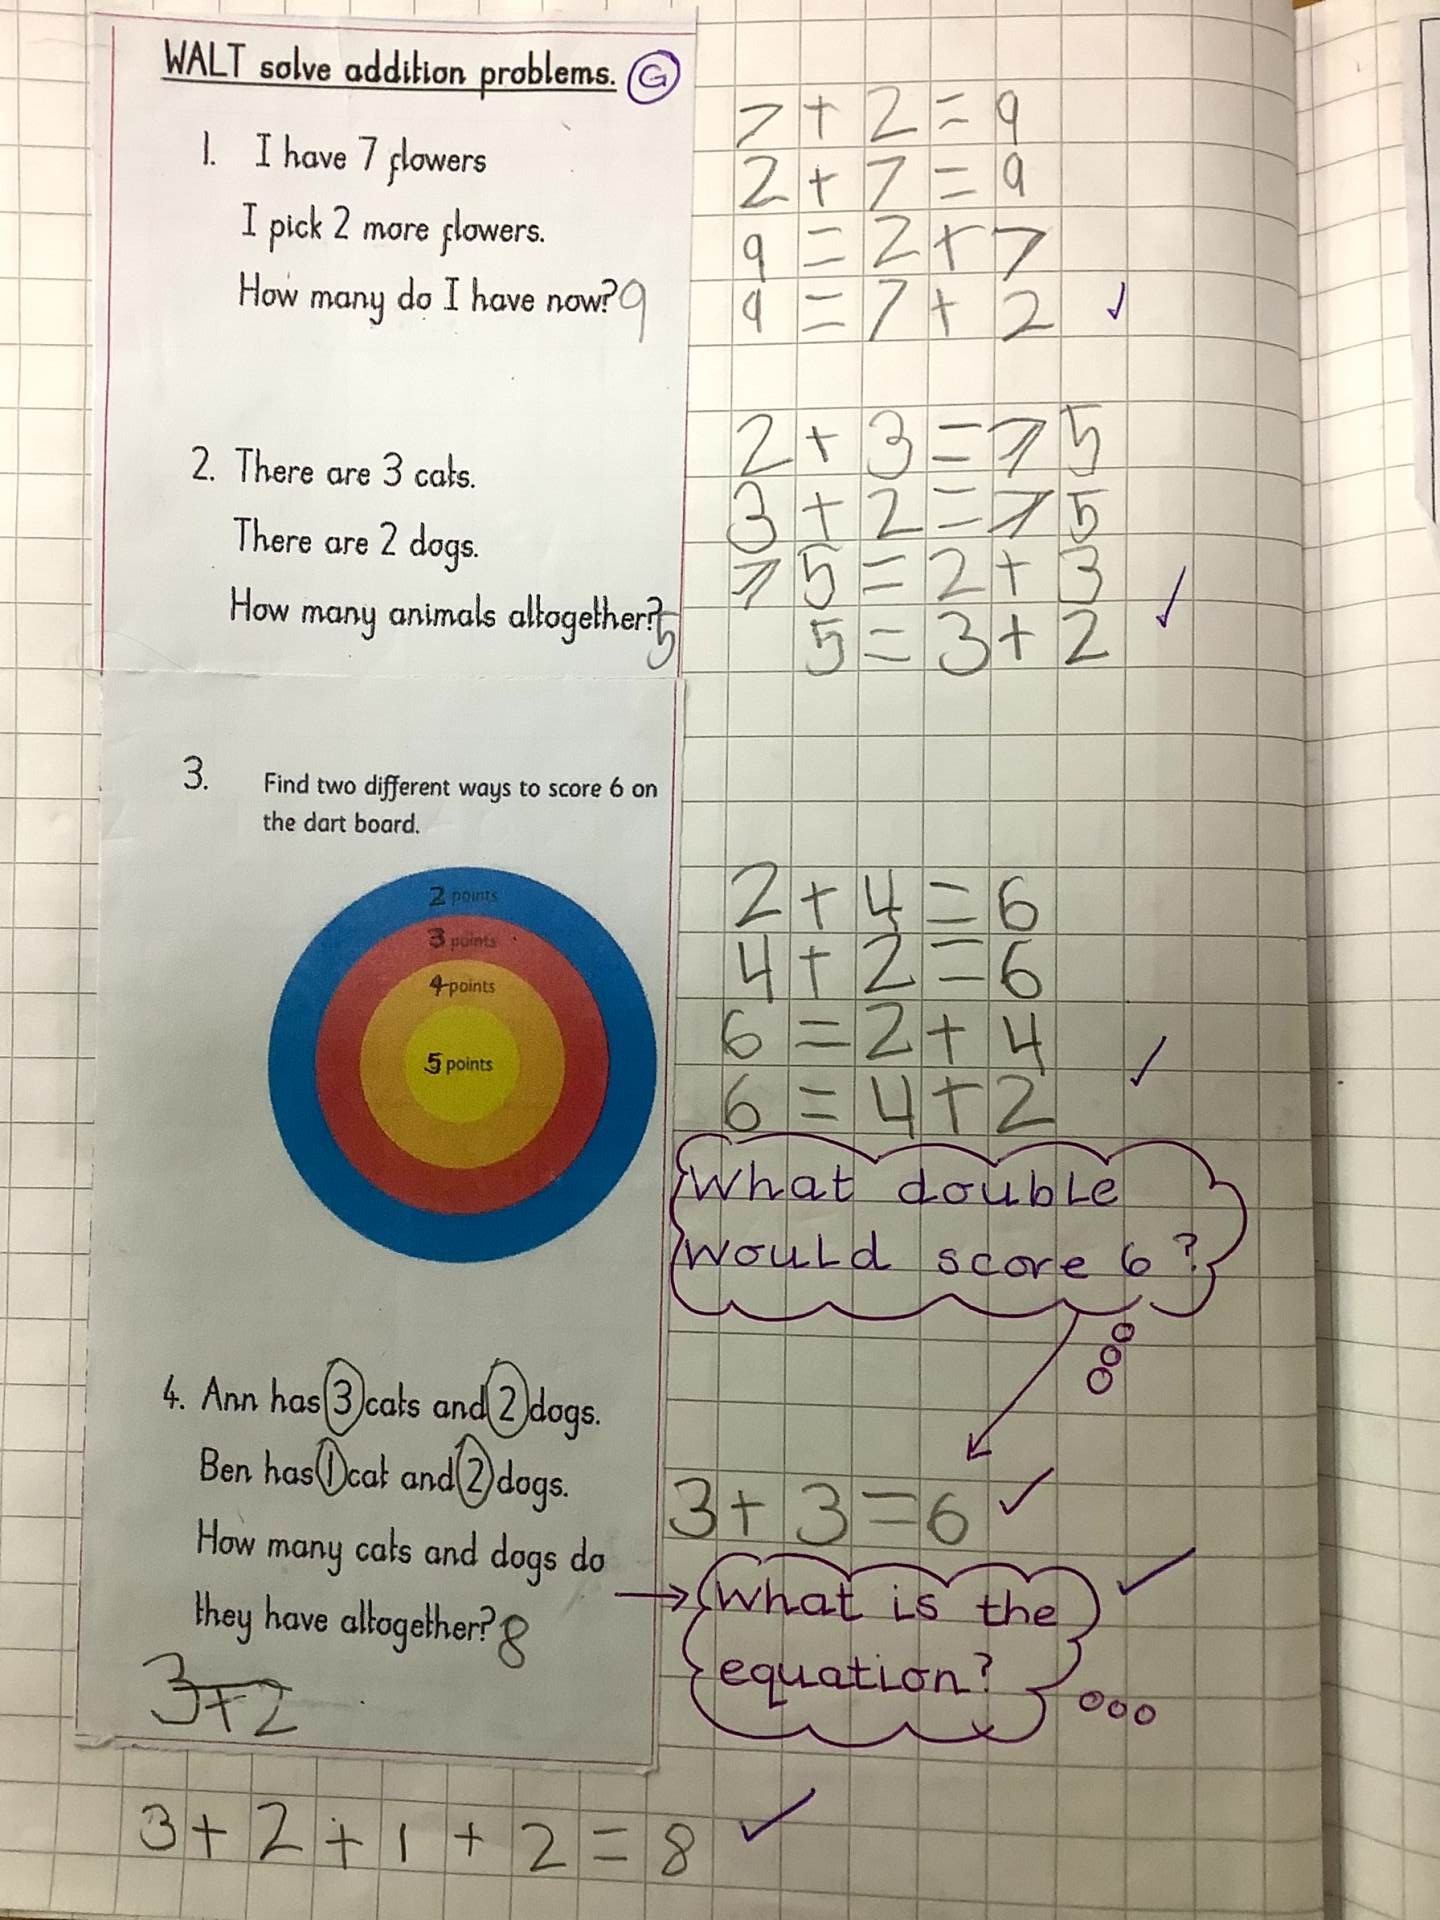 WALT solve addition problems. G
1. I have 7 flowers
I pick 2 more flowers.
How many do I have now? 9
7 + 2 = 9
2 + 7 = 9
9 = 2 + 7
9 = 7 + 2
2. There are 3 cats.
There are 2 dogs.
How many animals altogether? 5
2 + 3 = 5
3 + 2 = 5
5 = 2 + 3
5 = 3 + 2
3. Find two different ways to score 6 on
the dart board.
2 points
3 points
4 points
5 points
2 + 4 = 6
4 + 2 = 6
6 = 2 + 4
6 = 4 + 2
What double
would score 6?
3 + 3 = 6
4. Ann has 3 cats and 2 dogs.
Ben has 1 cat and 2 dogs.
How many cats and dogs do
they have altogether? 8
3+2
What is the
equation?
3 + 2 + 1 + 2 = 8